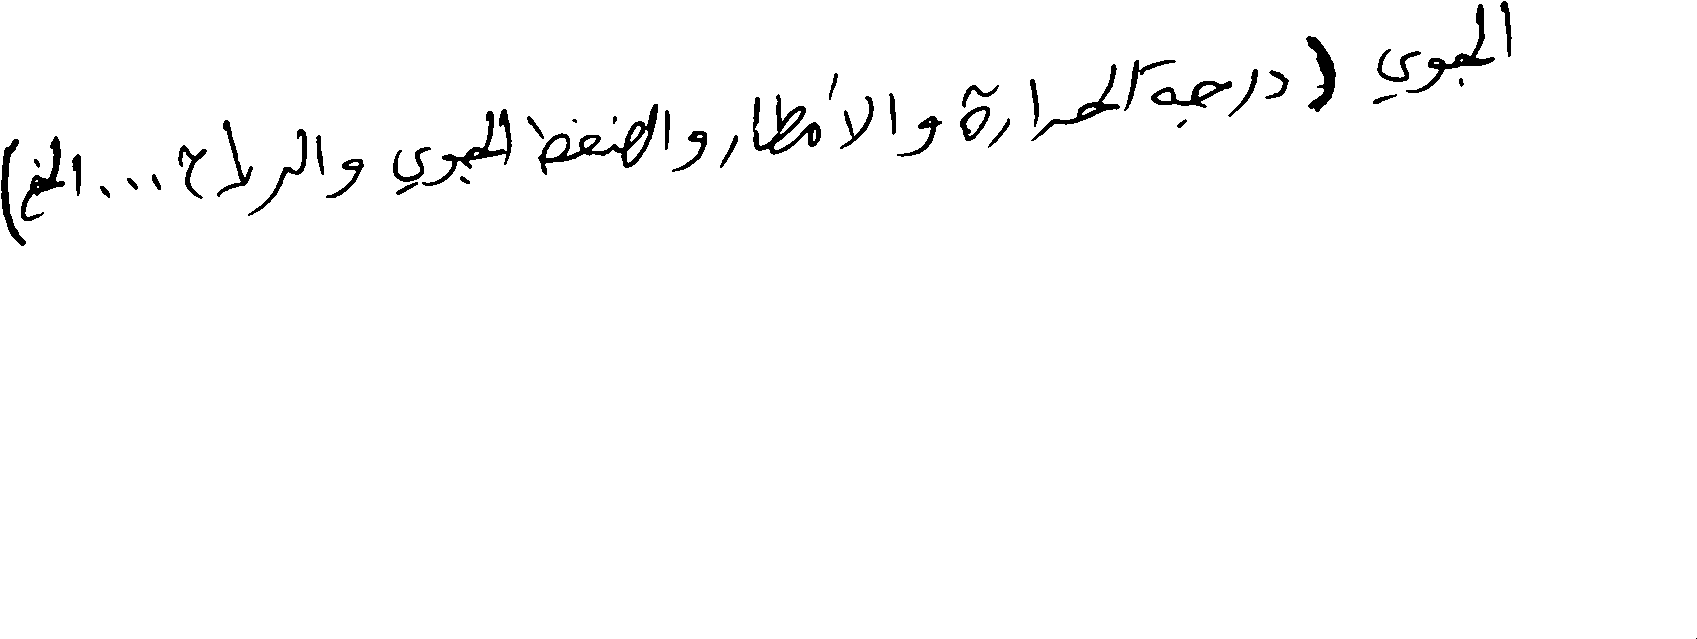 الجوي (درجة الحرارة والأمطار والضغط الجوي والرياح ... الخ)